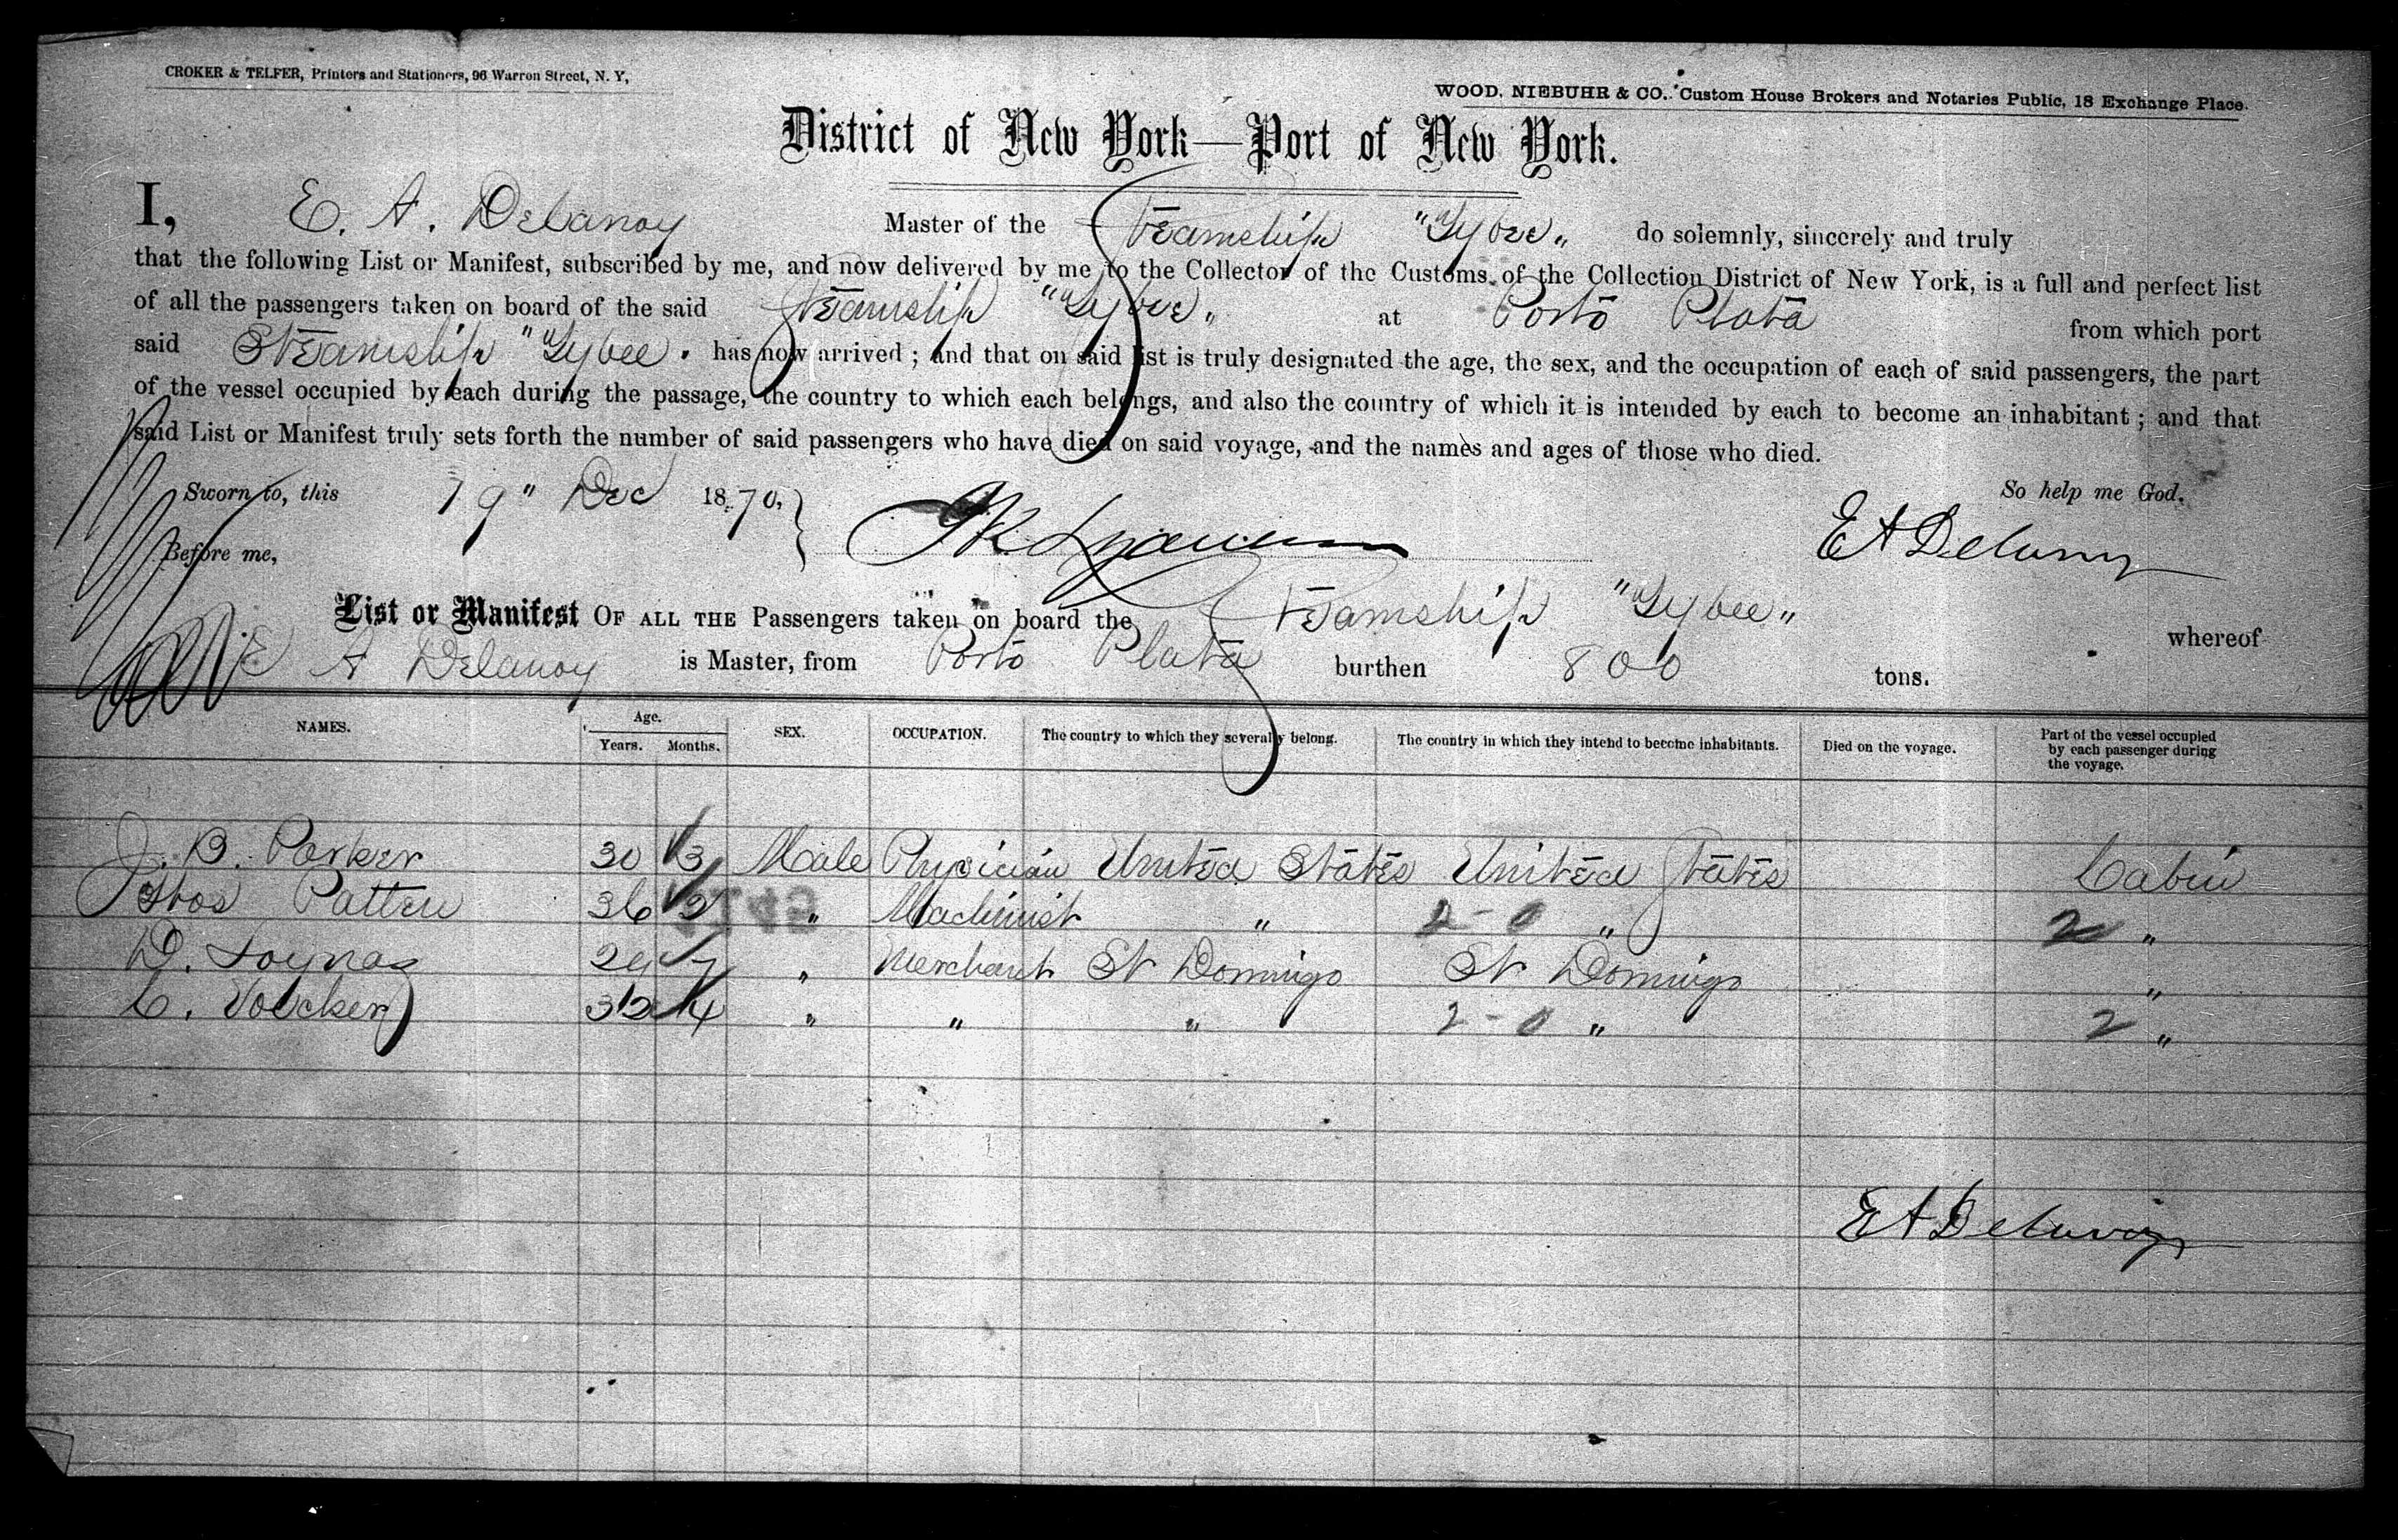 CROKER & TELFER, Printers and Stationers, 96 Warren Street, N. Y,
WOOD, NIEBUHR & CO. Custom House Brokers and Notaries Public, 18 Exchange Place.
District of New York—Port of New York.
I, E. A. Delanoy Master of the Steamship "Tybee" do solemnly, sincerely and truly
that the following List or Manifest, subscribed by me, and now delivered by me to the Collector of the Customs of the Collection District of New York, is a full and perfect list
of all the passengers taken on board of the said Steamship "Tybee" at Porto Plata from which port
said Steamship "Tybee" has now arrived; and that on said list is truly designated the age, the sex, and the occupation of each of said passengers, the part
of the vessel occupied by each during the passage, the country to which each belongs, and also the country of which it is intended by each to become an inhabitant; and that
said List or Manifest truly sets forth the number of said passengers who have died on said voyage, and the names and ages of those who died.
Sworn to, this 19" Dec 1870. So help me God.
Before me, E A Delanoy
List or Manifest OF ALL THE Passengers taken on board the Steamship "Tybee" whereof
E A Delanoy is Master, from Porto Plata burthen 800 tons.
NAMES. Age. Years. Months. SEX. OCCUPATION. The country to which they severally belong. The country in which they intend to become inhabitants. Died on the voyage. Part of the vessel occupied by each passenger during the voyage.
J. B. Parker 30 3 Male Physician United States United States Cabin
Thos Patten 36 2 " Machinist " 2-0 " 2 "
D. Loynaz 29 7 " Merchant St Domingo St Domingo "
C. Volcker 32 4 " " " 2-0 " 2 "
E A Delanoy